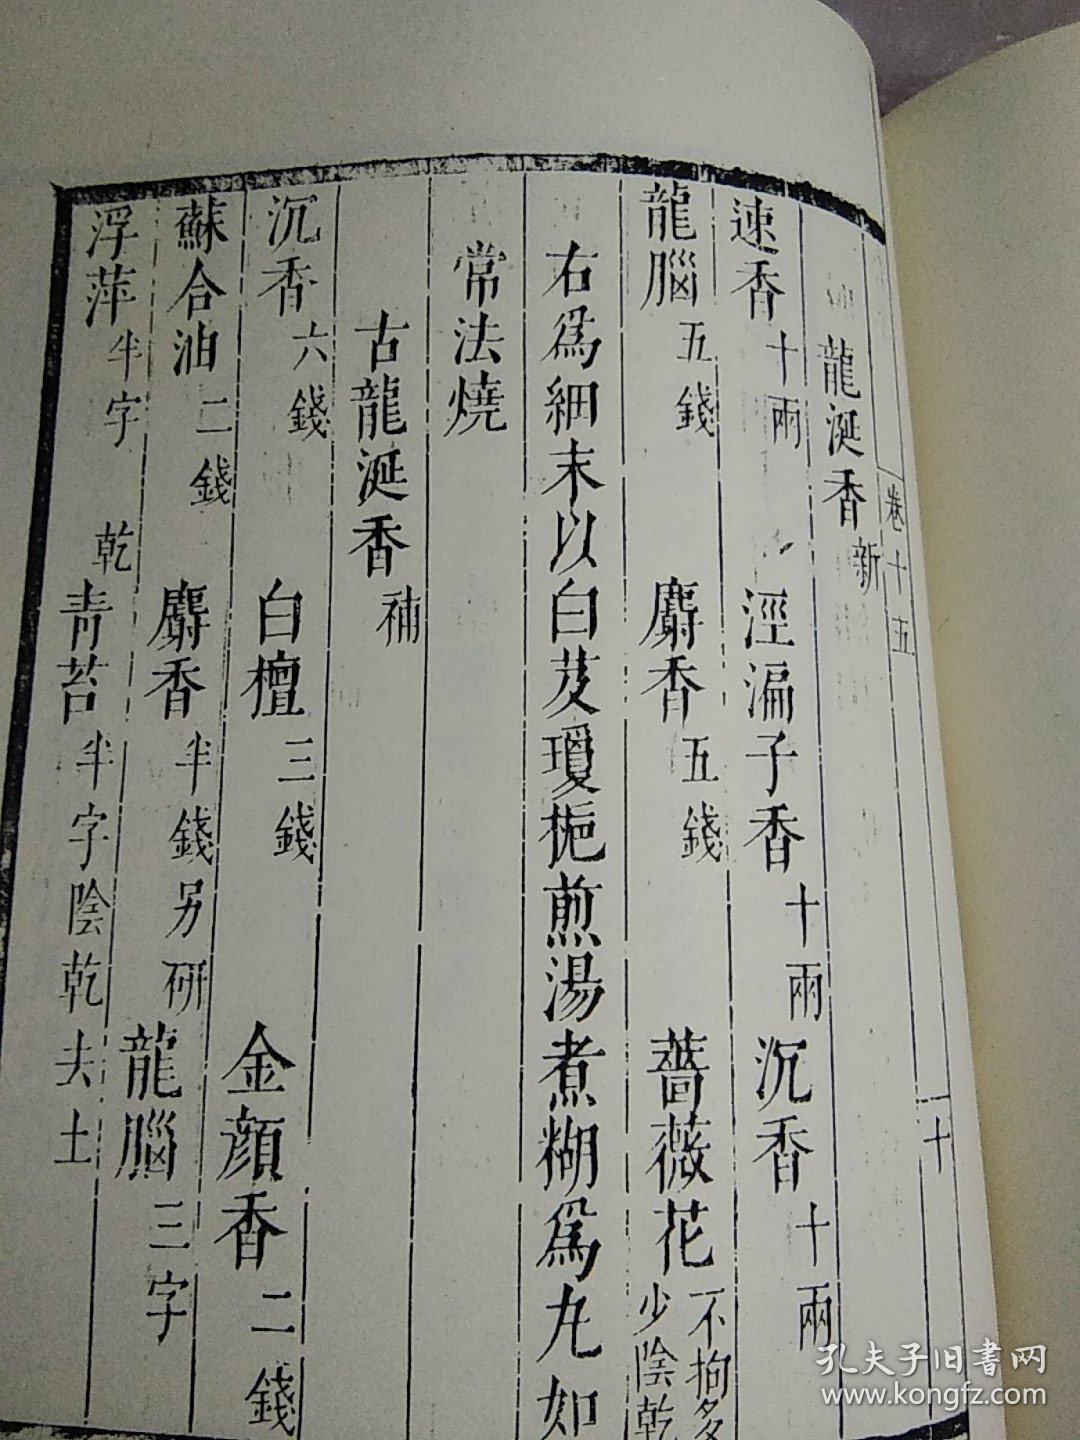 卷十五
十
龍涎香新
速香十兩 涇漏子香十兩 沉香十兩
龍腦五錢 麝香五錢 薔薇花不拘多少陰乾
右爲細末以白芨瓊梔煎湯煮糊爲丸如
常法燒
古龍涎香補
沉香六錢 白檀三錢 金顔香二錢
蘇合油二錢 麝香半錢另研 龍腦三字
浮萍半字乾 青苔半字陰乾去土
孔夫子旧書网
www.kongfz.com